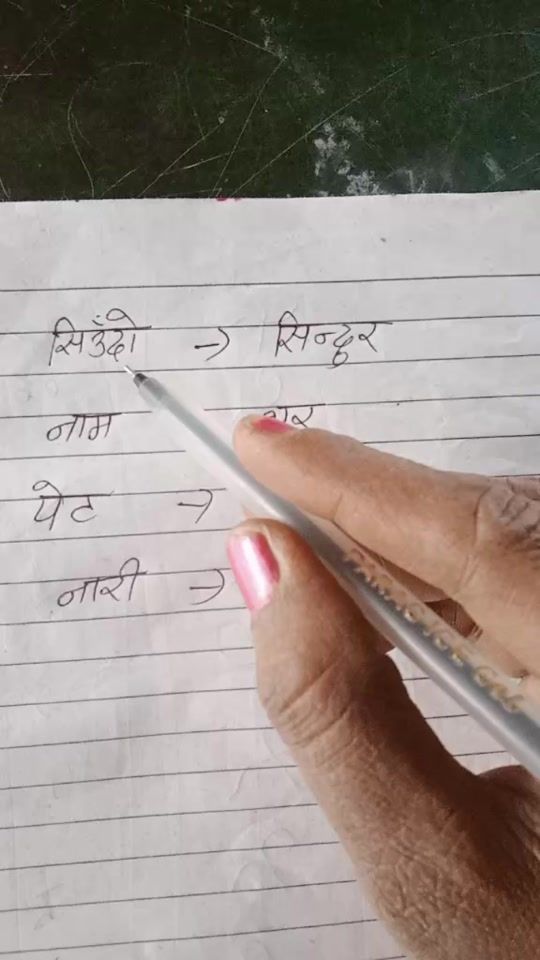 सिउँदो → सिन्दुर
नाम
पेट →
नारी →